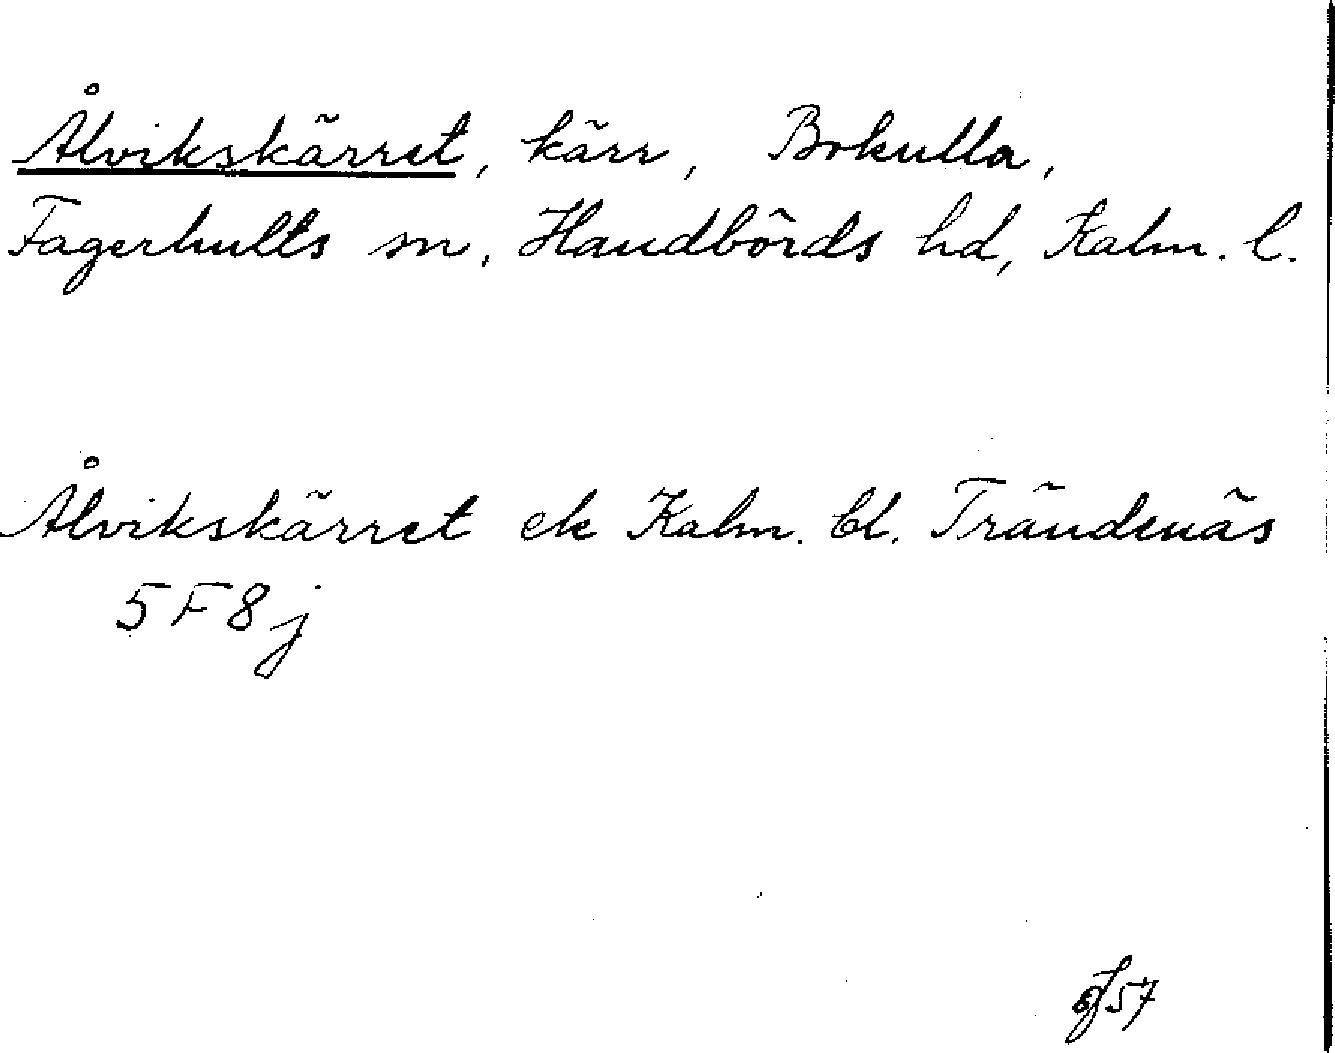 Ålvikskärret, kärr, Bokulla,
Fagerhults sn, Handbörds hd, Kalm. l.
Ålvikskärret ek Kalm. bl. Trändenäs
5F8j
57